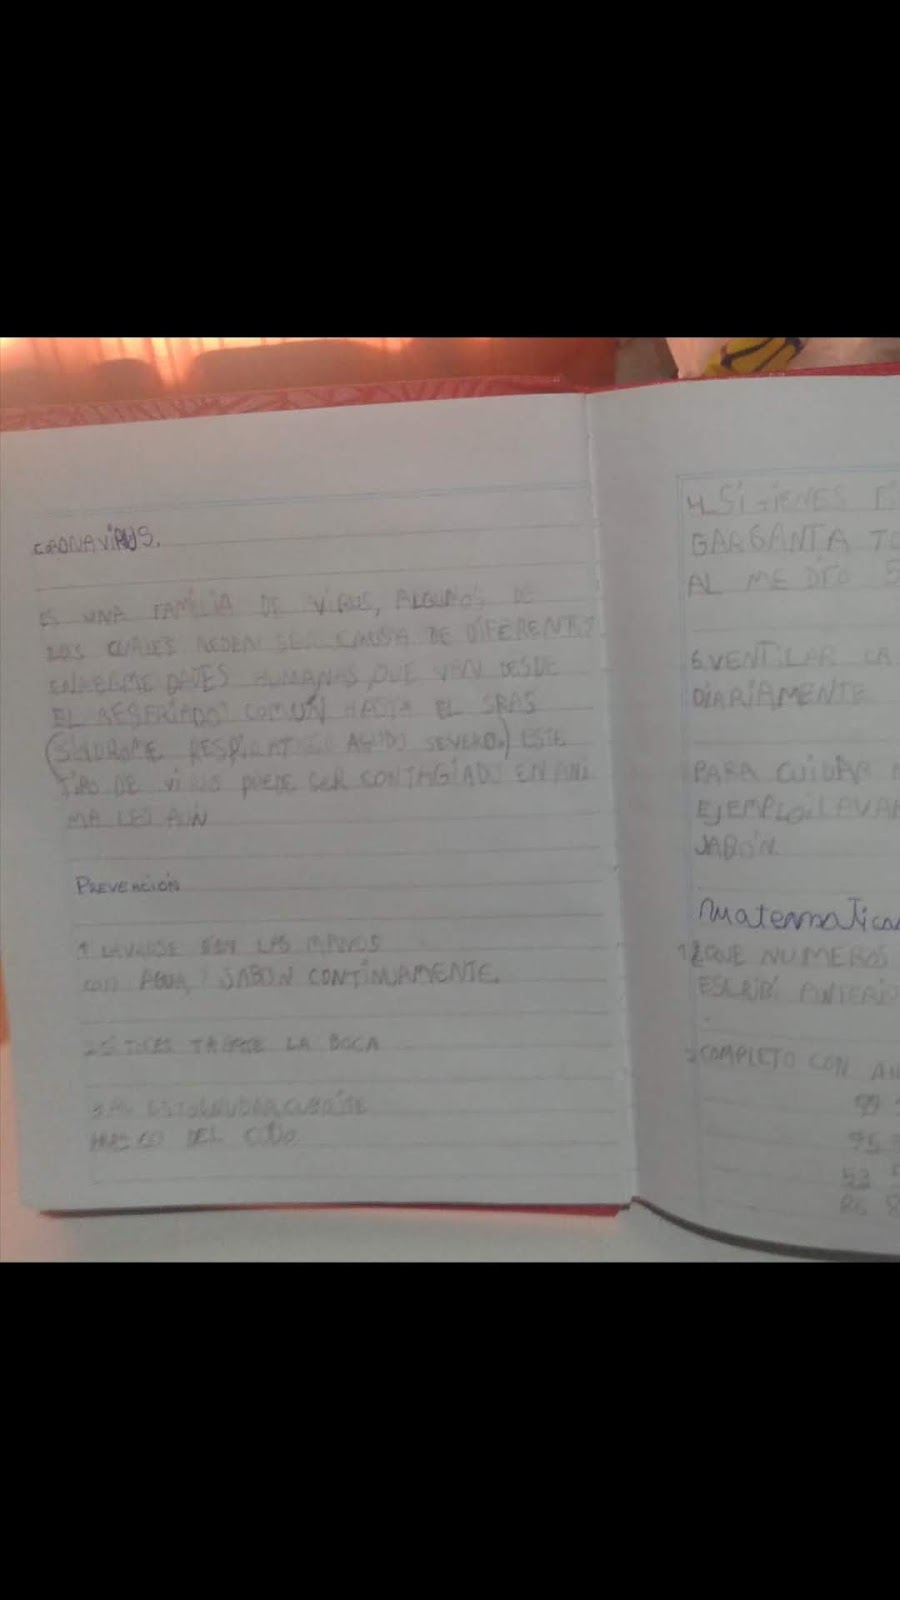 CRONAVIRUS.
ES UNA FAMILIA DE VIRUS, ALGUNOS DE
LOS CUALES PEDEN SER CAUSA DE DIFERENTES
HUMANAS, QUE VAN DESDE
EL RESFRIADO COMÚN HASTA EL SRAS
RESPIRATORIO AGUDO SEVERO.) ESTE
TIPO DE VIRUS PUEDE SER CONTAGIADO EN ANI
MALES AÚN
PREVENCIÓN
1 LAVARSE LAS MANOS
CON AGUA Y JABON CONTINUAMENTE.
LA BOCA
3 AL ESTORNUDAR,
DEL CODO
4 SI TIENES
GARGANTA
AL ME DICO
VENTILAR
DIARIAMENTE
PARA CUIDAR
EJEMPLO: LAVAR
JABÓN
Matematica
QUE NUMEROS
ESCRIBI ANTERIO
COMPLETO CON
99
75
53
86